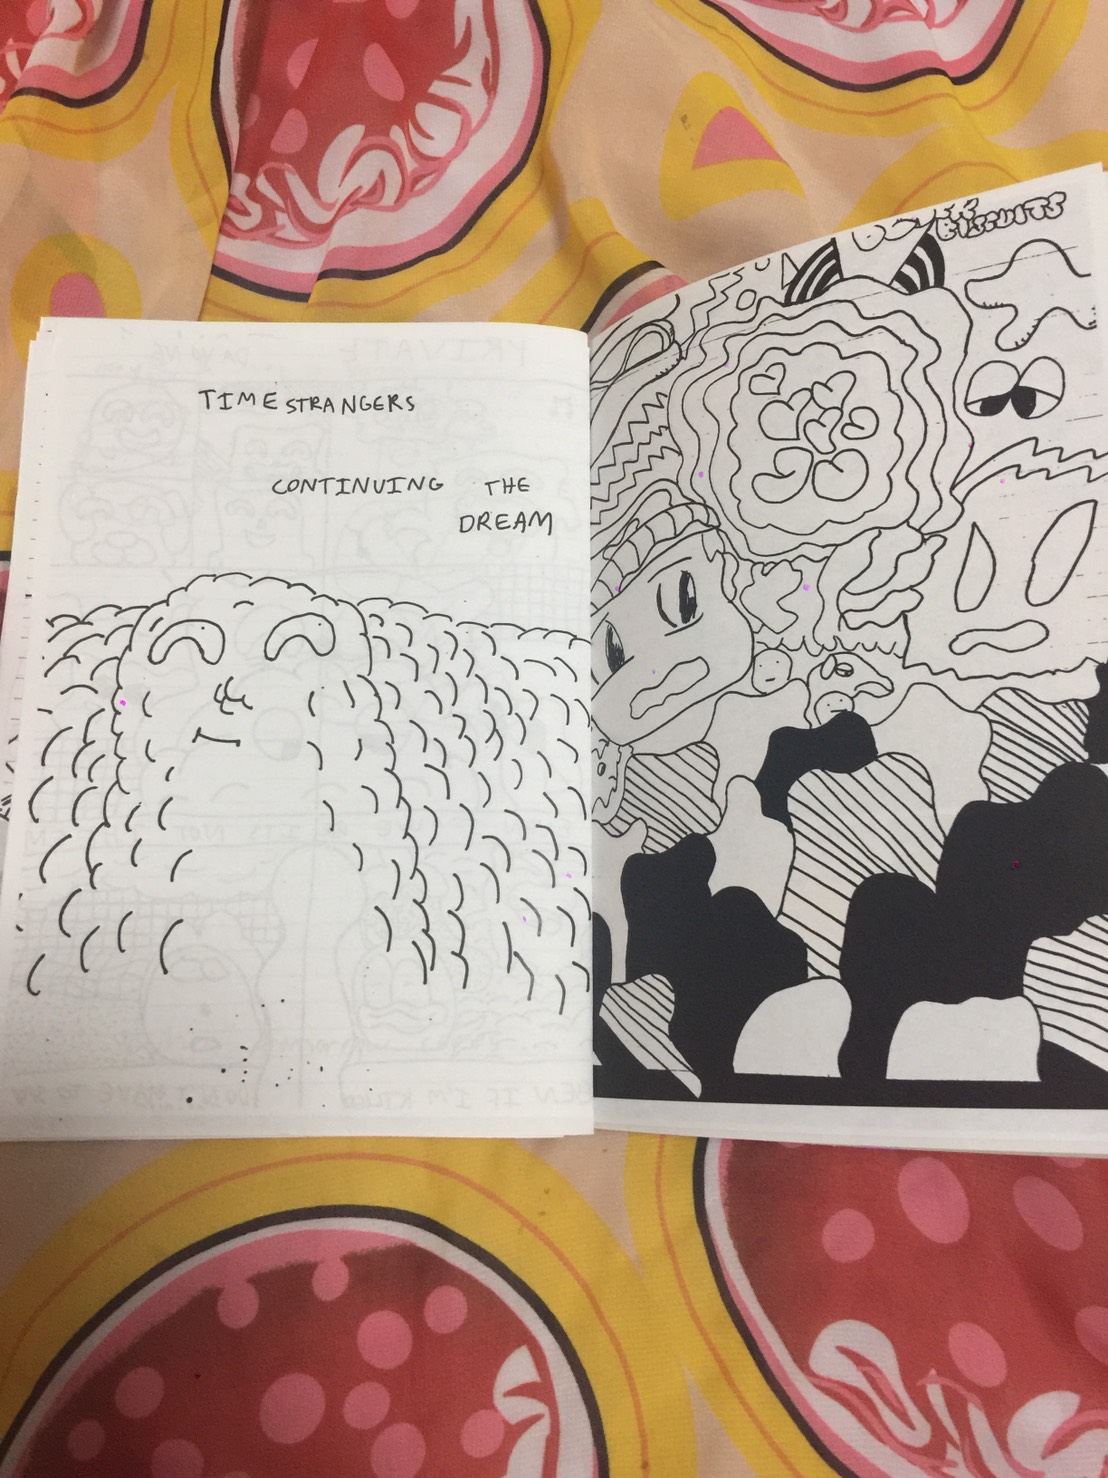 TIME STRANGERS
CONTINUING THE
DREAM
BISCUITS